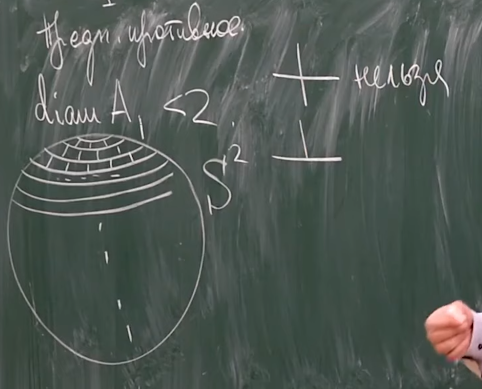 Предп. противное.
diam A₁ < 2.
нельзя
S²